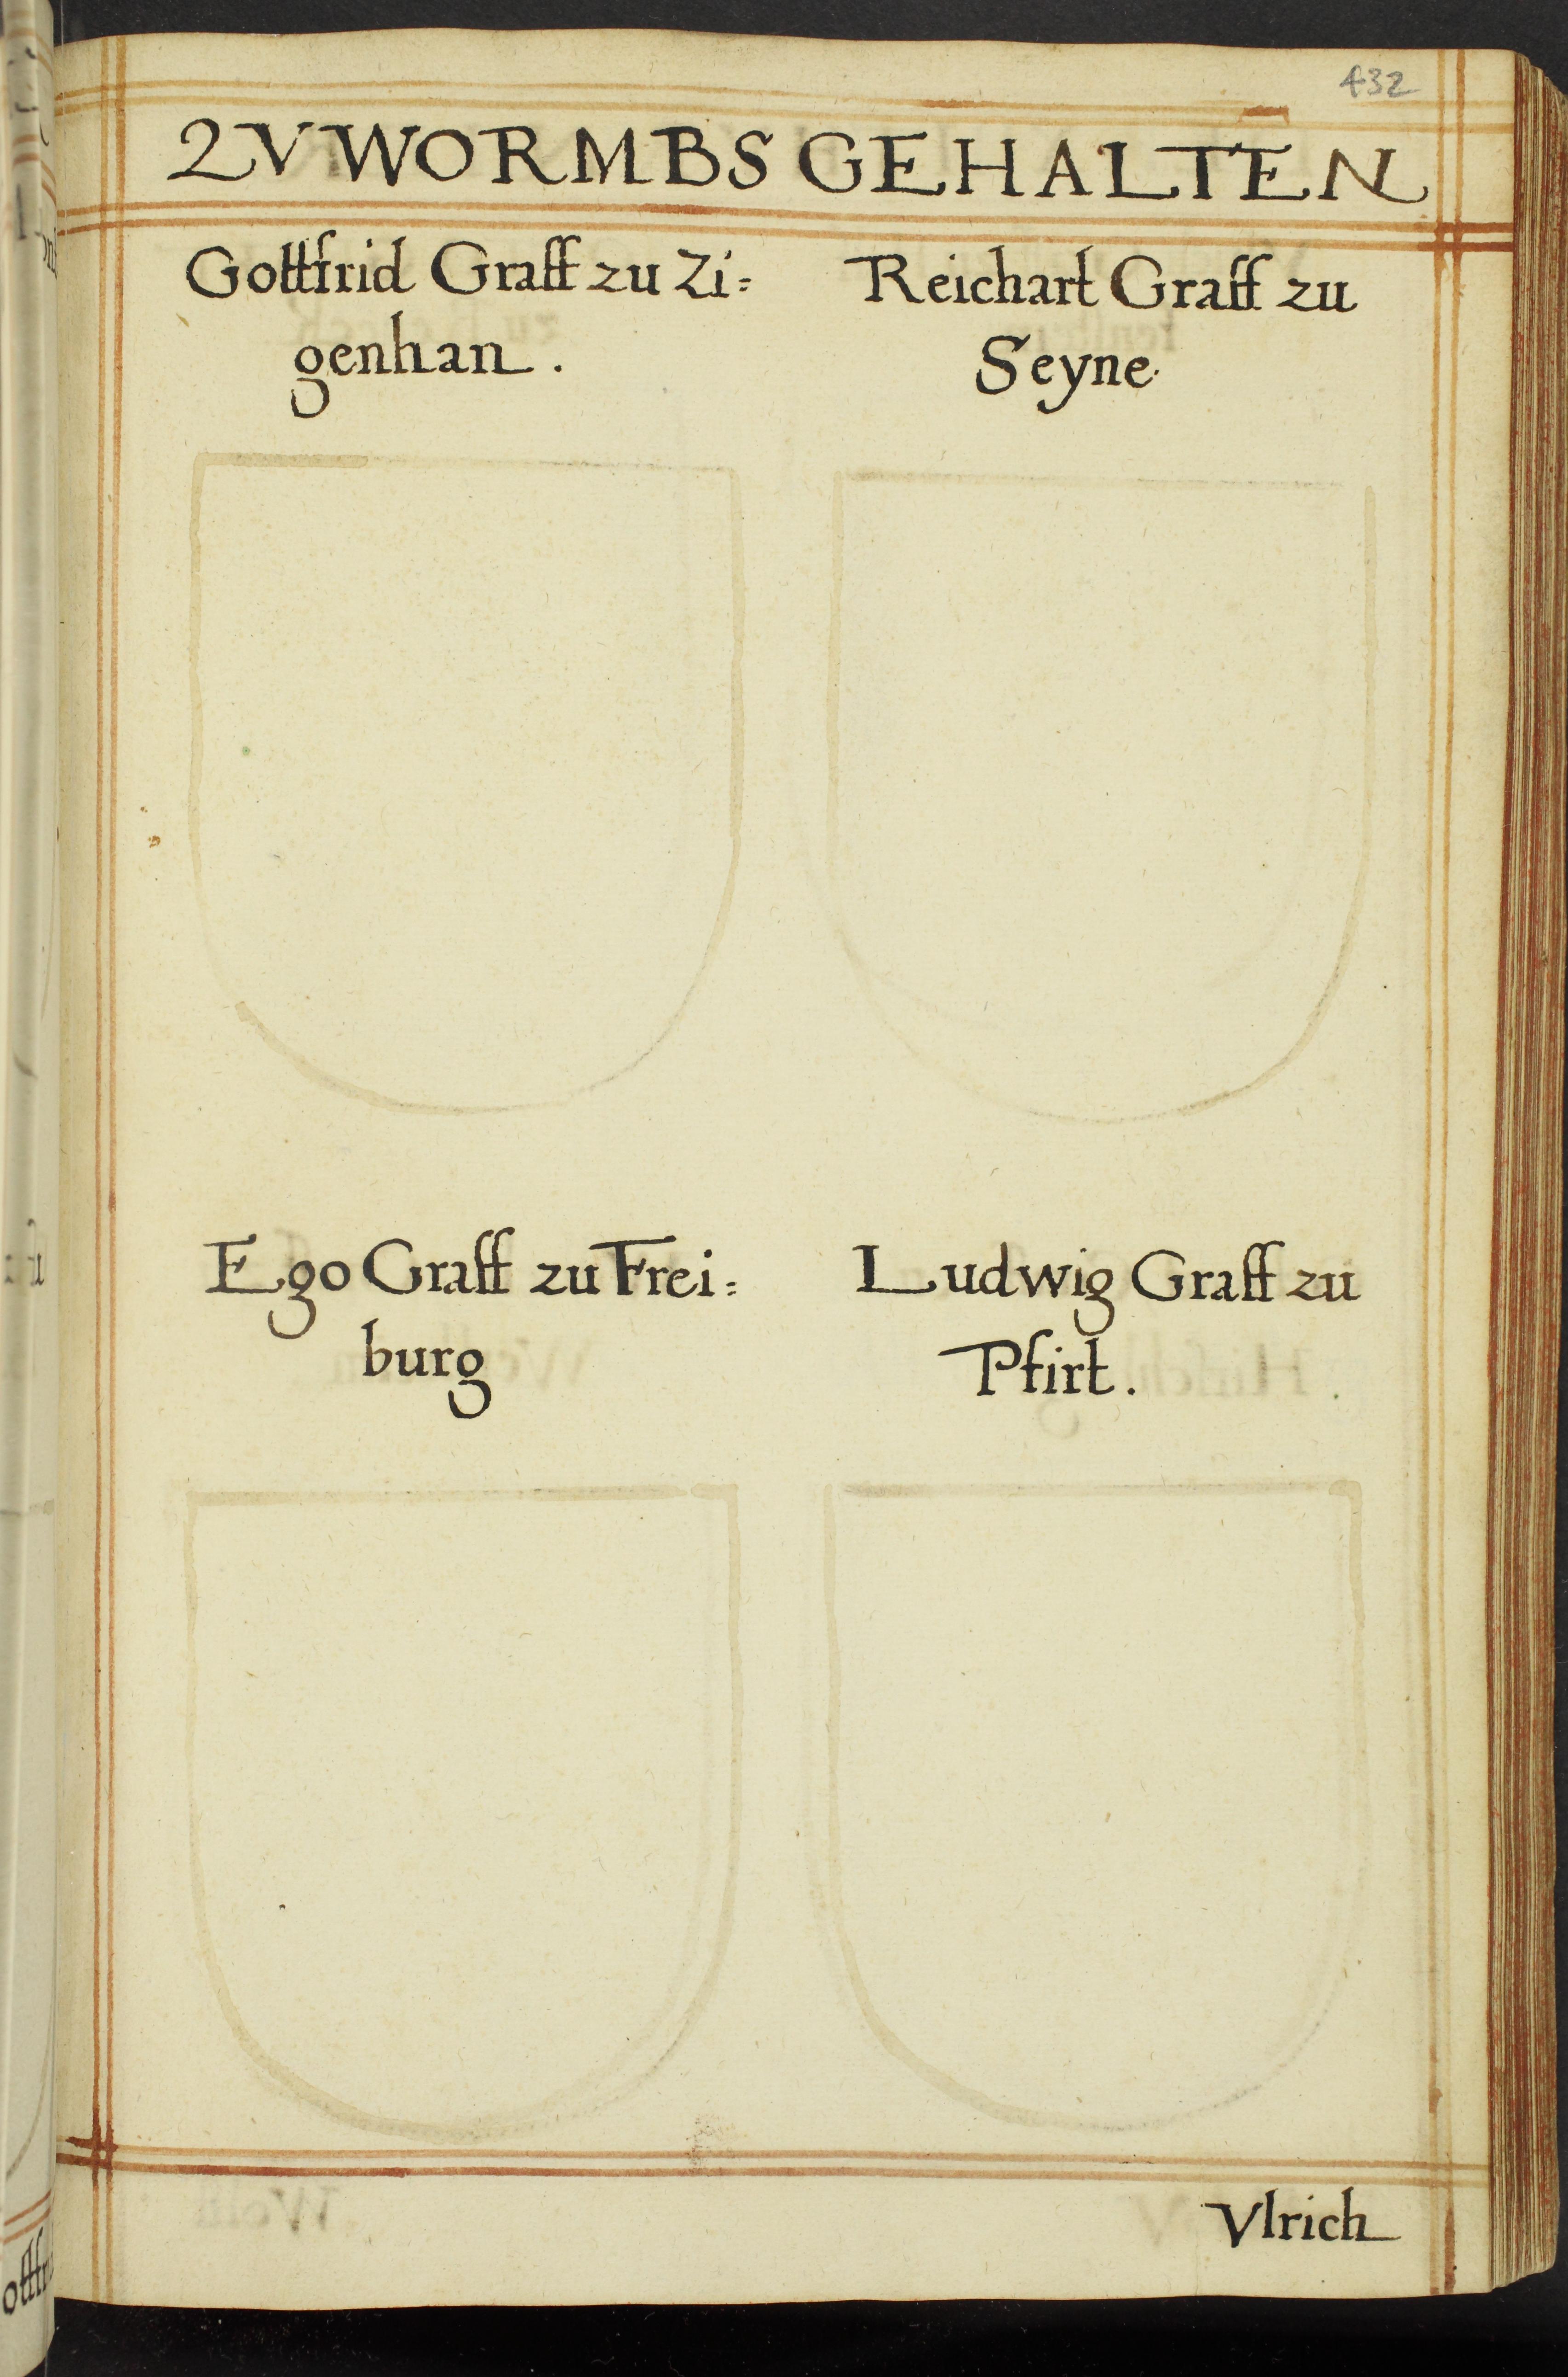 432
ZV WORMBS GEHALTEN
Gottfrid Graff zu Zi=
genhan.
Reichart Graff zu
Seyne.
Ego Graff zu Frei=
burg
Ludwig Graff zu
Pfirt.
Vlrich